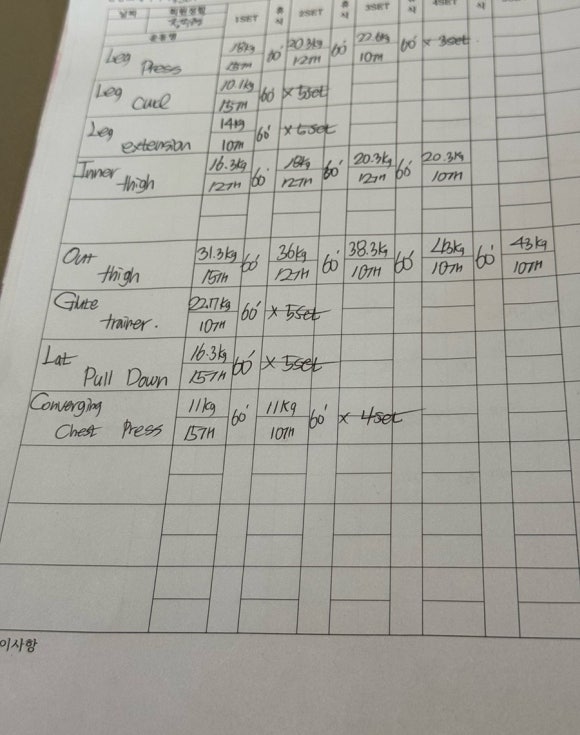 날짜 회원성함 1SET 휴식 2SET 휴식 3SET 휴식 4SET 식
운동명
Leg Press 18kg 15개 60' 20.3kg 12개 60' 22.6kg 10개 60' × 3set
Leg Curl 10.1kg 15개 60' × 5set
Leg extension 14kg 10개 60' × 5set
Inner thigh 16.3kg 12개 60' 18kg 12개 60' 20.3kg 12개 60' 20.3kg 10개
Out thigh 31.3kg 15개 60' 36kg 12개 60' 38.3kg 10개 60' 43kg 10개 60' 43kg 10개
Glute trainer. 22.7kg 10개 60' × 5set
Lat Pull Down 16.3kg 15개 60' × 5set
Converging Chest Press 11kg 15개 60' 11kg 10개 60' × 4set
이사항